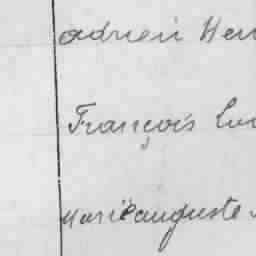 adrien Hen
François Lu
Marie auguste